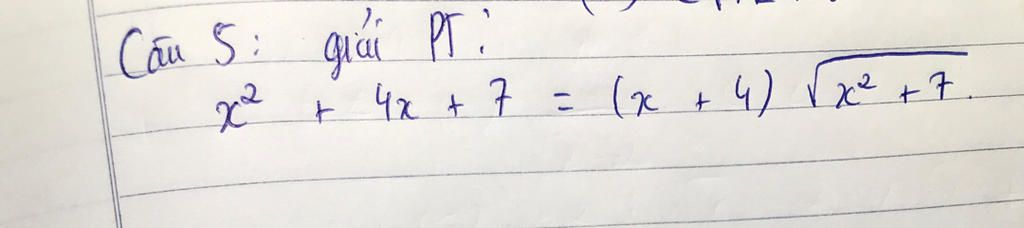 Câu 5: giải PT:
x² + 4x + 7 = (x + 4) √(x² + 7).